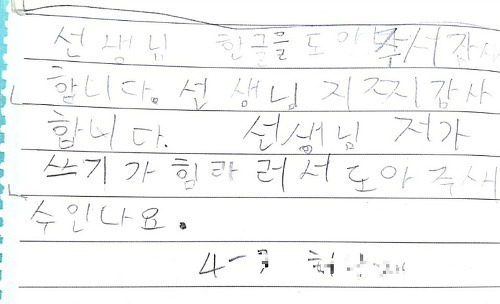 선생님 한글을 도아주서 감사
합니다. 선생님 지주지 감사
합니다. 선생님 저가
쓰기가 힘라러서 도아주새
수인나요.
4-